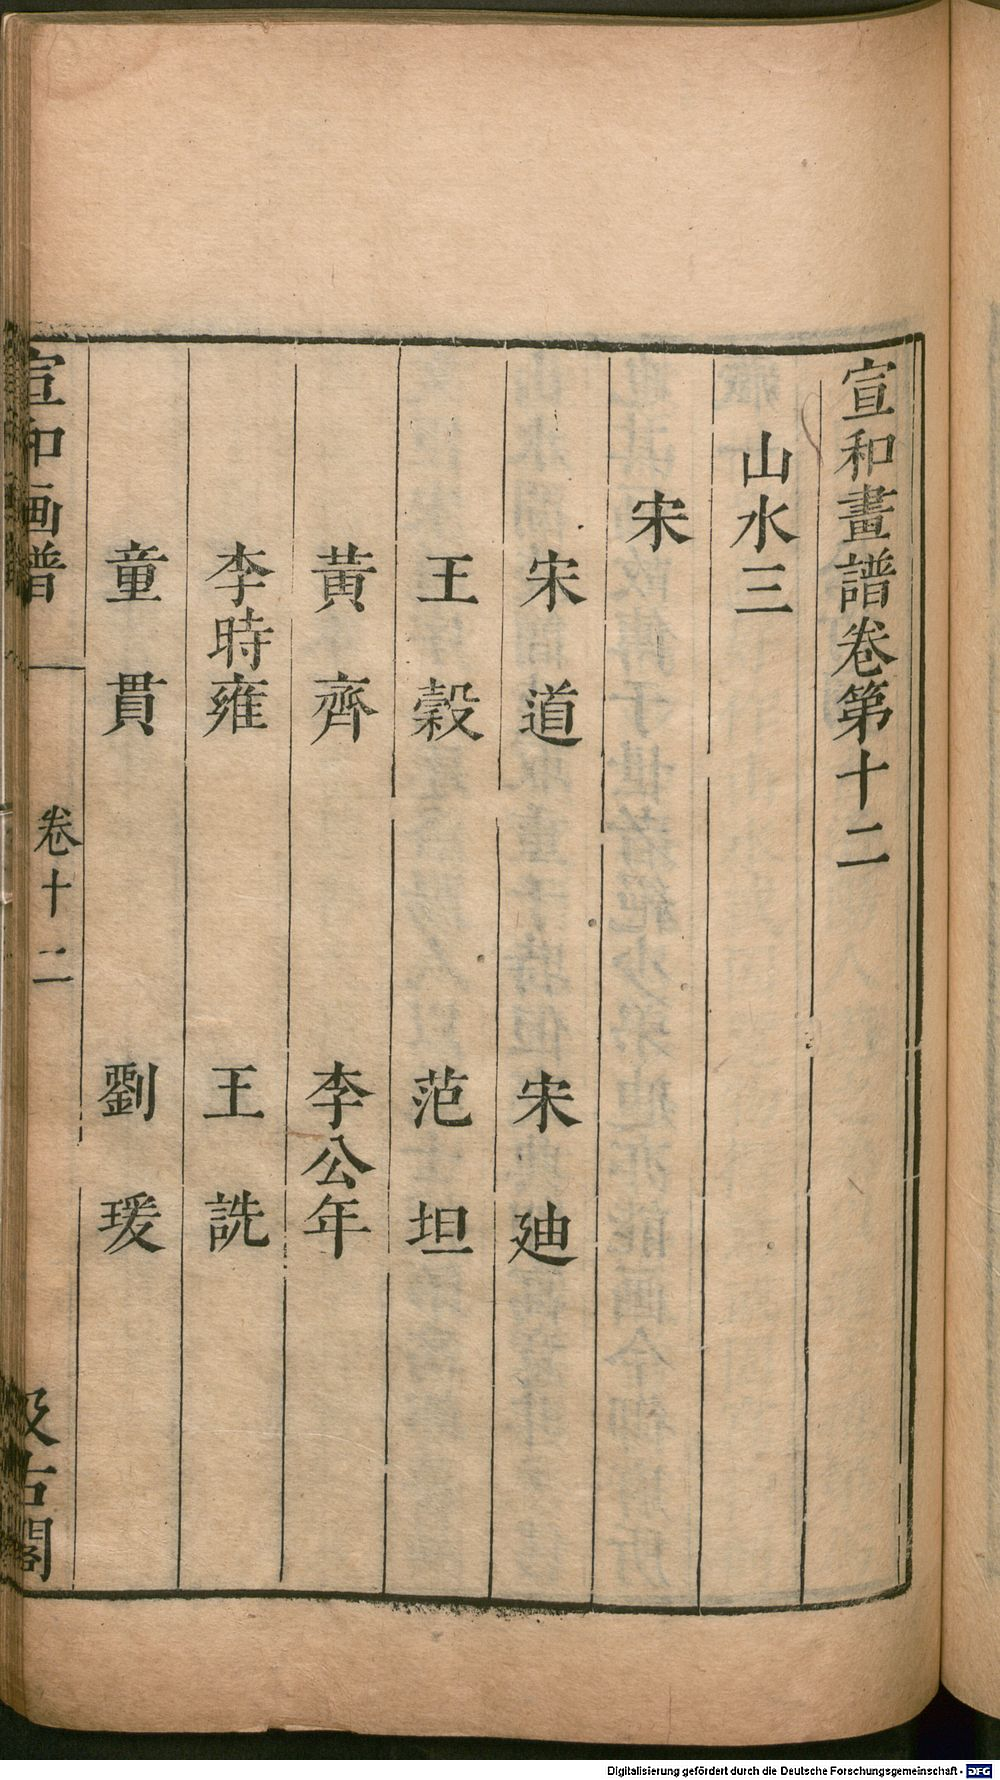 宣和畫譜卷第十二
山水三
宋
宋道 宋迪
王穀 范坦
黃齊 李公年
李時雍 王詵
童貫 劉瑗
宣和画譜 卷十二 汲古閣
Digitalisierung gefördert durch die Deutsche Forschungsgemeinschaft - DFG